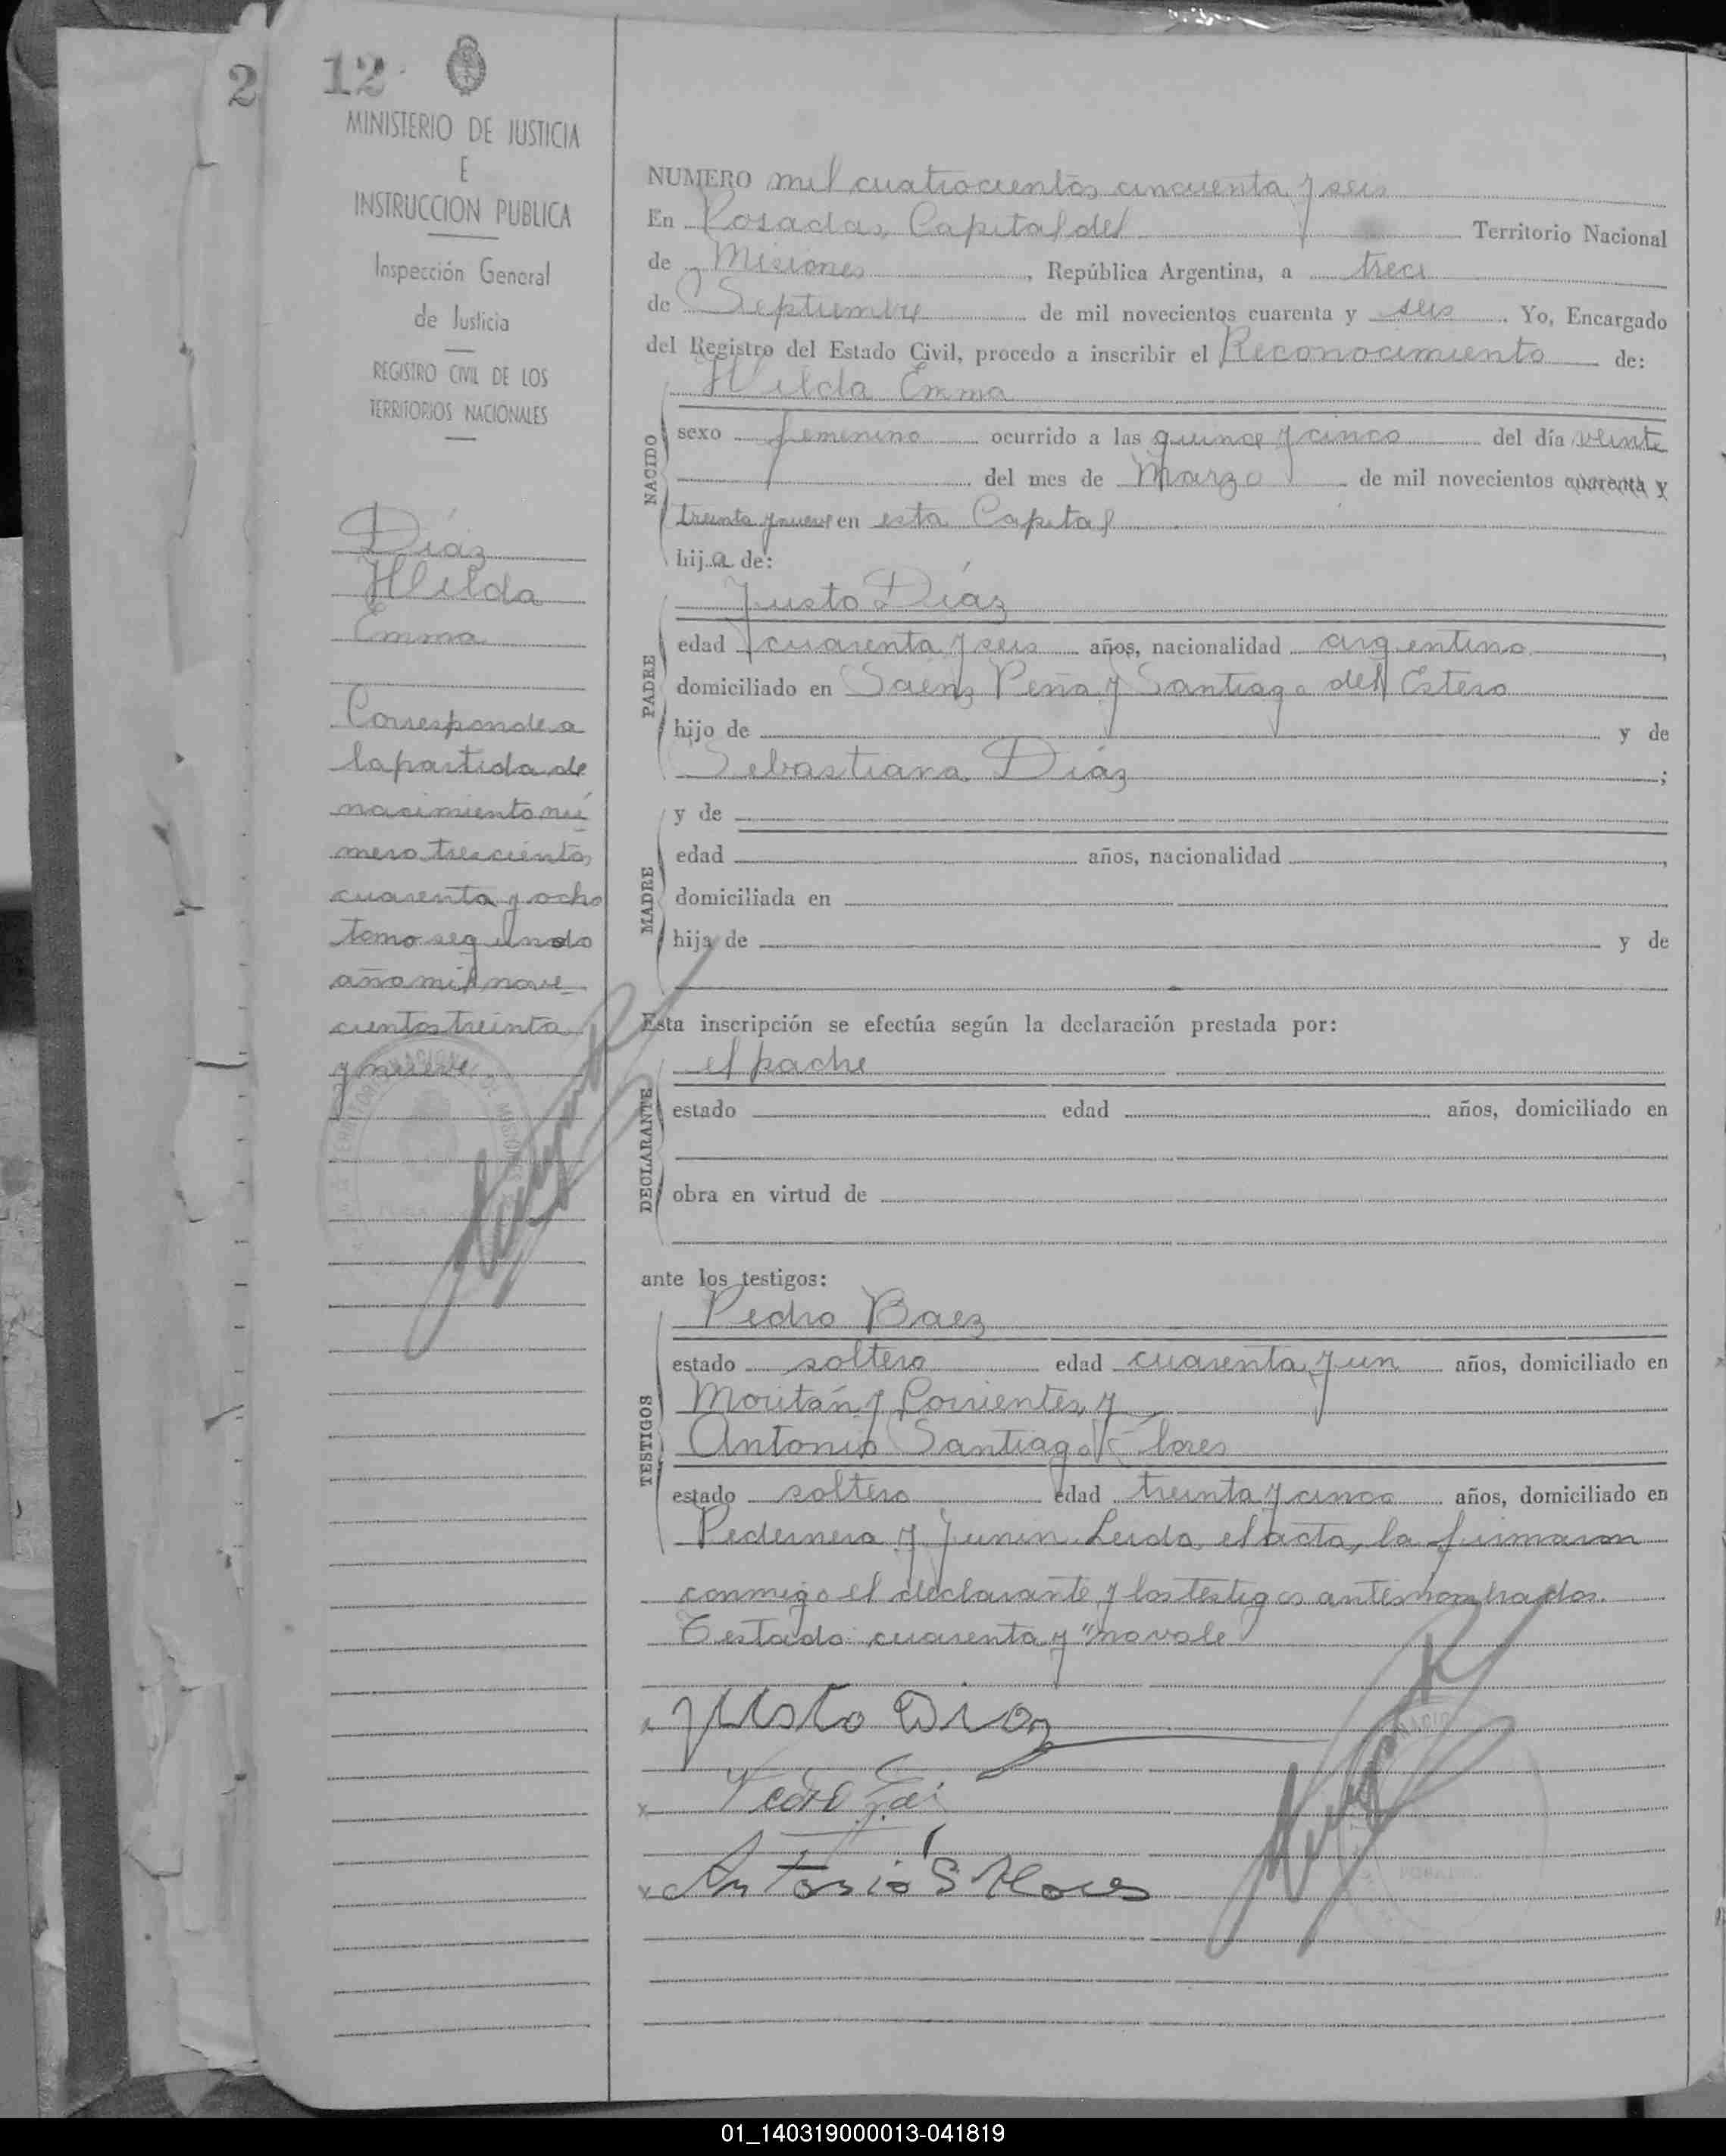 2
12
MINISTERIO DE JUSTICIA
E
INSTRUCCION PUBLICA
Inspección General
de Justicia
REGISTRO CIVIL DE LOS
TERRITORIOS NACIONALES
Díaz
Hilda
Emma
Corresponde a
la partida de
nacimiento nú
mero trescientos
cuarenta y ocho
tomo segundo
año mil nove
cientos treinta
y nueve
NUMERO mil cuatrocientos cincuenta y seis
En Posadas, Capital del Territorio Nacional
de Misiones, República Argentina, a trece
de Septiembre de mil novecientos cuarenta y seis. Yo, Encargado
del Registro del Estado Civil, procedo a inscribir el Reconocimiento de:
Hilda Emma
NACIDO
sexo femenino ocurrido a las quince y cinco del día veinte
del mes de Marzo de mil novecientos cuarenta y
treinta y nueve en esta Capital
hija de:
PADRE
Justo Díaz
edad cuarenta y seis años, nacionalidad argentino,
domiciliado en Saenz Peña y Santiago del Estero
hijo de y de
Sebastiana Díaz;
MADRE
y de
edad años, nacionalidad ,
domiciliada en
hija de y de
Esta inscripción se efectúa según la declaración prestada por:
DECLARANTE
el padre
estado edad años, domiciliado en
obra en virtud de
ante los testigos:
TESTIGOS
Pedro Baez
estado soltero edad cuarenta y un años, domiciliado en
Moritán y Corrientes, y
Antonio Santiago Flores
estado soltero edad treinta y cinco años, domiciliado en
Pedernera y Junin. Leida el acta, la firmaron
conmigo el declarante y los testigos antes nombrados.
Testado: cuarenta y "no vale
Justo Diaz
Pedro
Antonio S Flores
01_140319000013-041819